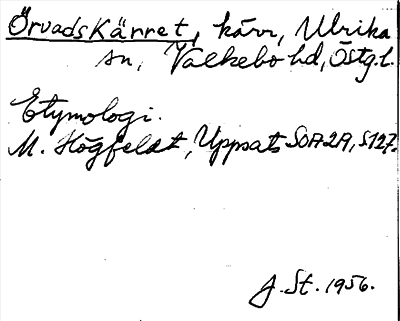 Örvadskärret, kärr, Ulrika
sn, Valkebo hd, Östg.l.
Etymologi.
M. Högfeldt, Uppsats SOÄ2A, S127.
J. St. 1956.